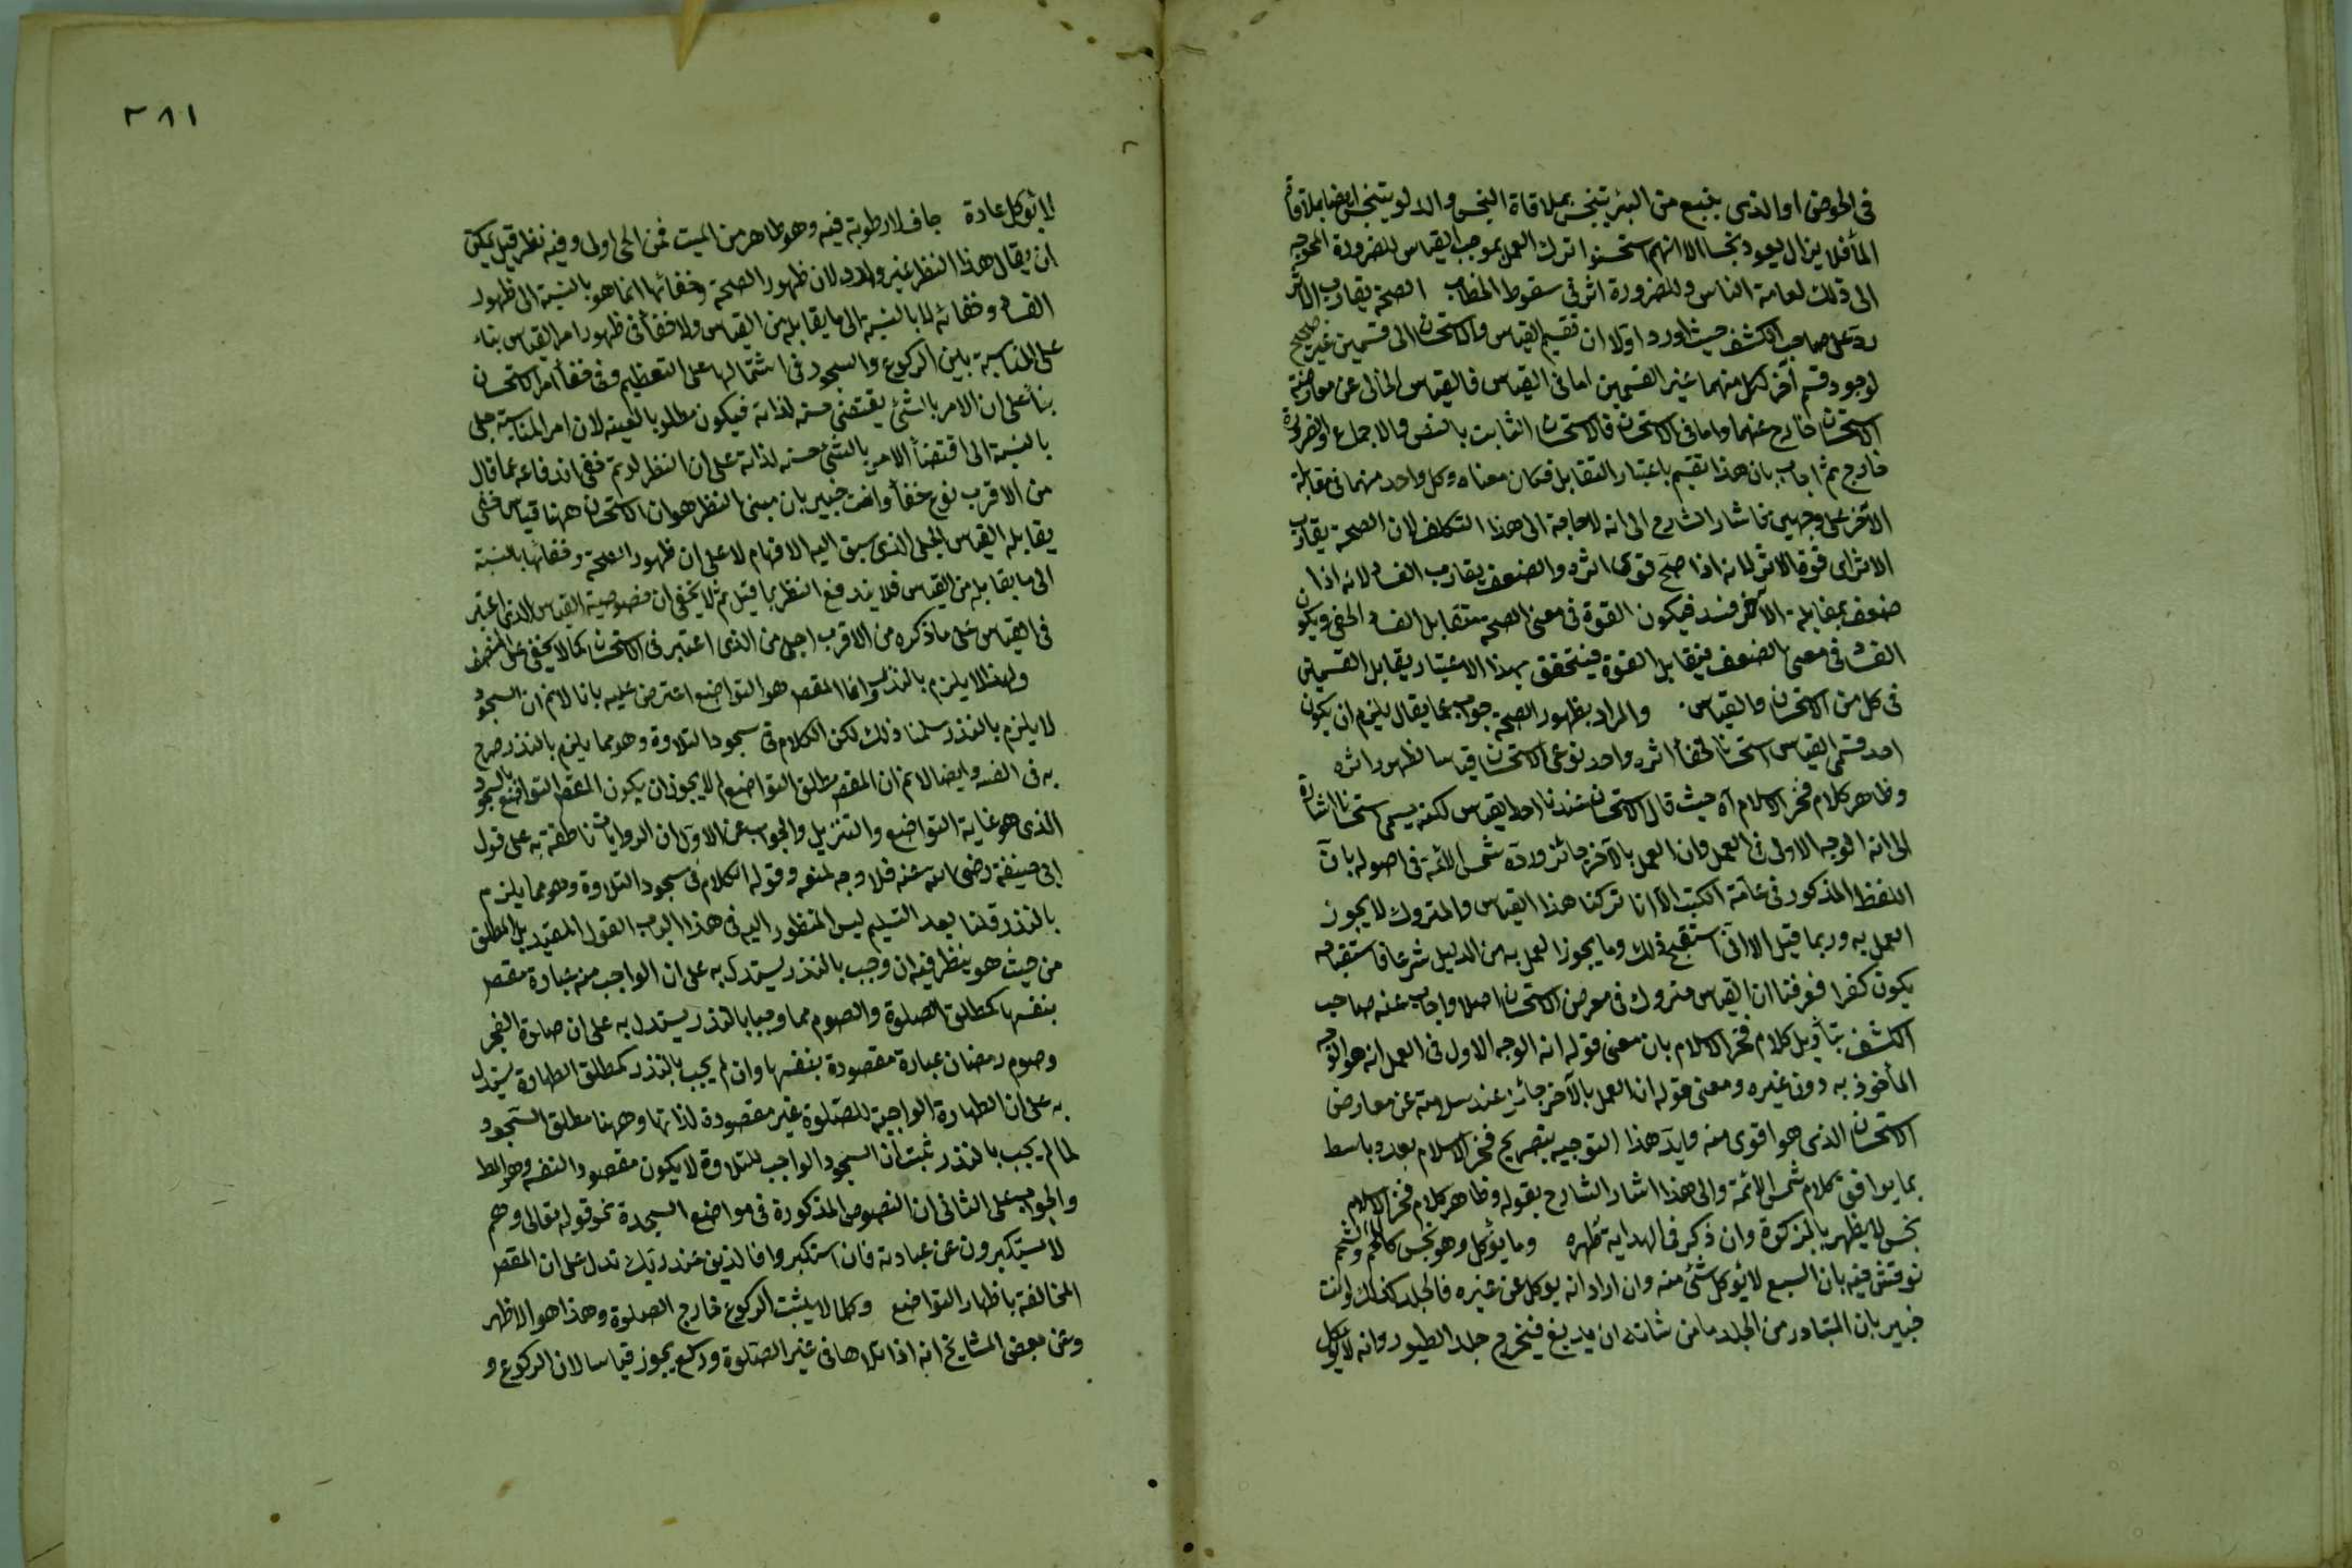 في الحوض او الذي ينبع من البئر يتنجس بملاقاة النجس والدلو يتنجس ايضا بملاقاة
الماء فلا يزال يعود نجسا الا انهم استحسنوا ترك العمل بموجب القياس للضرورة المحوجة
الى ذلك لعامة الناس وللضرورة اثر في سقوط الخطاب الصحة يقارب الاثر
رد على صاحب الكشف حيث اورد اولا ان تقسيم القياس والاستحسان الى قسمين غير صحيح
لوجود قسم آخر لكل منهما غير القسمين اما في القياس فالقياس الخالي عن معارضة
الاستحسان خارج عنهما واما في الاستحسان فالاستحسان الثابت بالنص والاجماع والضرورة
خارج ثم اجاب بان هذا تقسيم باعتبار التقابل فكان معناه وكل واحد منهما في مقابلة
الآخر على وجهين فاشار الشارح الى انه لا حاجة الى هذا التكلف لان الصحة يقارب
الاثر اى قوة الاثر لانه اذا صح قوى اثره والضعف يقارب الفساد لانه اذا
ضعف بمقابلة الآخر فسد فيكون القوة في معنى الصحة فتقابل الفساد الخفى ويكون
الفساد في معنى الضعف فيقابل القوة فيتحقق بهذا الاعتبار يقابل القسمين
في كل من الاستحسان والقياس والمراد بظهور الصحة جواب عما يقال يلزم ان يكون
احد قسمى القياس استحسانا لخفأ اثره واحد نوعى الاستحسان قياسا لظهور اثره
وظاهر كلام فخر الاسلام آه حيث قال الاستحسان عندنا احد القياسين لكنه يسمى استحسانا اشارة
الى انه الوجه الاولى في العمل وان العمل بالآخر جائز ورده شمس الائمة في اصوله بان
اللفظ المذكور في عامة الكتب الا انا تركنا هذا القياس والمتروك لا يجوز
العمل به وربما قيل الا انى استقبح ذلك وما يجوز العمل به من الدليل شرعا فاستقباحه
يكون كفرا فعرفنا ان القياس متروك في معرض الاستحسان اصلا واجاب عنه صاحب
الكشف بتأويل كلام فخر الاسلام بان معنى قوله انه الوجه الاولى في العمل انه هو الوجه
المأخوذ به دون غيره ومعنى قوله ان العمل بالآخر جائز عند سلامته عن معارض
الاستحسان الذي هو اقوى منه وايد هذا التوجيه بتصريح فخر الاسلام بعد وباسط
بما يوافق كلام شمس الائمة والى هذا اشار الشارح بقوله وظاهر كلام فخر الاسلام
نجس لا يظهر بالزكوة وان ذكر في الهداية تطهره وما يؤكل وهو نجس كاللحم والشحم
نوقش فيه بان السبع لا يؤكل شئ منه وان اراد انه يوكل عن غيره فالجلد كذلك وانت
خبير بان المتبادر من الجلد ما من شانه ان يدبغ فيخرج جلد الطيور وانه لا يؤكل
٢٨١
لا يؤكل عادة جاف لا رطوبة فيه وهو طاهر من الميت فمن الحى اولى وفيه نظر قيل يمكن
ان يقال هذا النظر غير وارد لان ظهور الصحة وخفائها انما هو بالنسبة الى ظهور
الفساد وخفائه لا بالنسبة الى ما يقابله من القياس ولا خفأ في ظهور امر القياس بناء
على المناسبة بين الركوع والسجود في اشتمالهما على التعظيم وفي خفأ امر الاستحسان
بناء على ان الامر بالشئ يقتضى حسنه لذاته فيكون مطلوبا لعينه لان امر المناسبة جلى
بالنسبة الى اقتضأ الامر بالشئ حسنه لذاته على ان النظر لو تم ففى اندفاعه عما قال
من الاقرب نوع خفأ وانت خبير بان مبنى النظر هو ان الاستحسان ههنا قياس خفى
يقابله القياس الجلى الذي سبق اليه الافهام لا على ان ظهور الصحة وخفائها بالنسبة
الى ما يقابله من القياس فلا يندفع النظر بما قيل ثم لا يخفى ان خصوصية القياس الذي اعتبر
في القياس على ما ذكره من الاقرب اجلى من الذي اعتبر في الاستحسان كما لا يخفى على المنصف
ولهذا لا يلزم بالنذر وانما المقصود هو التواضع اعترض عليه بانا لانم ان السجود
لا يلزم بالنذر سلمنا ذلك لكن الكلام في سجود التلاوة وهو مما يلزم بالنذر صرح
به في الفقه وايضا لانم ان المقصود مطلق التواضع لم لا يجوز ان يكون المقصود التواضع بالسجود
الذي هو غاية التواضع والتنزيل والجواب عن الاول ان الروايات ناطقة به على قول
ابى حنيفة رضى الله عنه فلا وجه لمنعه وقوله الكلام في سجود التلاوة وهو مما يلزم
بالنذر قلنا بعد التسليم ليس المنظور اليه في هذا الباب القول المقيد بل المطلق
من حيث هو ينظر فيه ان وجب بالنذر يستدل به على ان الواجب منه عبادة مقصودة
بنفسها كمطلق الصلوة والصوم مما وجبا بالنذر يستدل به على ان صلوة الفجر
وصوم رمضان عبادة مقصودة بنفسها وان لم يجب بالنذر كمطلق الطهارة يستدل
به على ان الطهارة الواجبة للصلوة غير مقصودة لذاتها وههنا مطلق السجود
لما لم يجب بالنذر ثبت ان السجود الواجب للتلاوة لا يكون مقصود النفسه وهو المط
والجواب على الثانى ان النصوص المذكورة في مواضع السجدة نحو قوله تعالى وهم
لا يستكبرون عن عبادته فان استكبروا فالذين عند ربك تدل على ان المقصود
المخالفة باظهار التواضع وكما لا يثبت الركوع خارج الصلوة وهذا هو الاظهر
وعن بعض المشايخ انه اذا تلاها في غير الصلوة وركع يجوز قياسا لان الركوع و